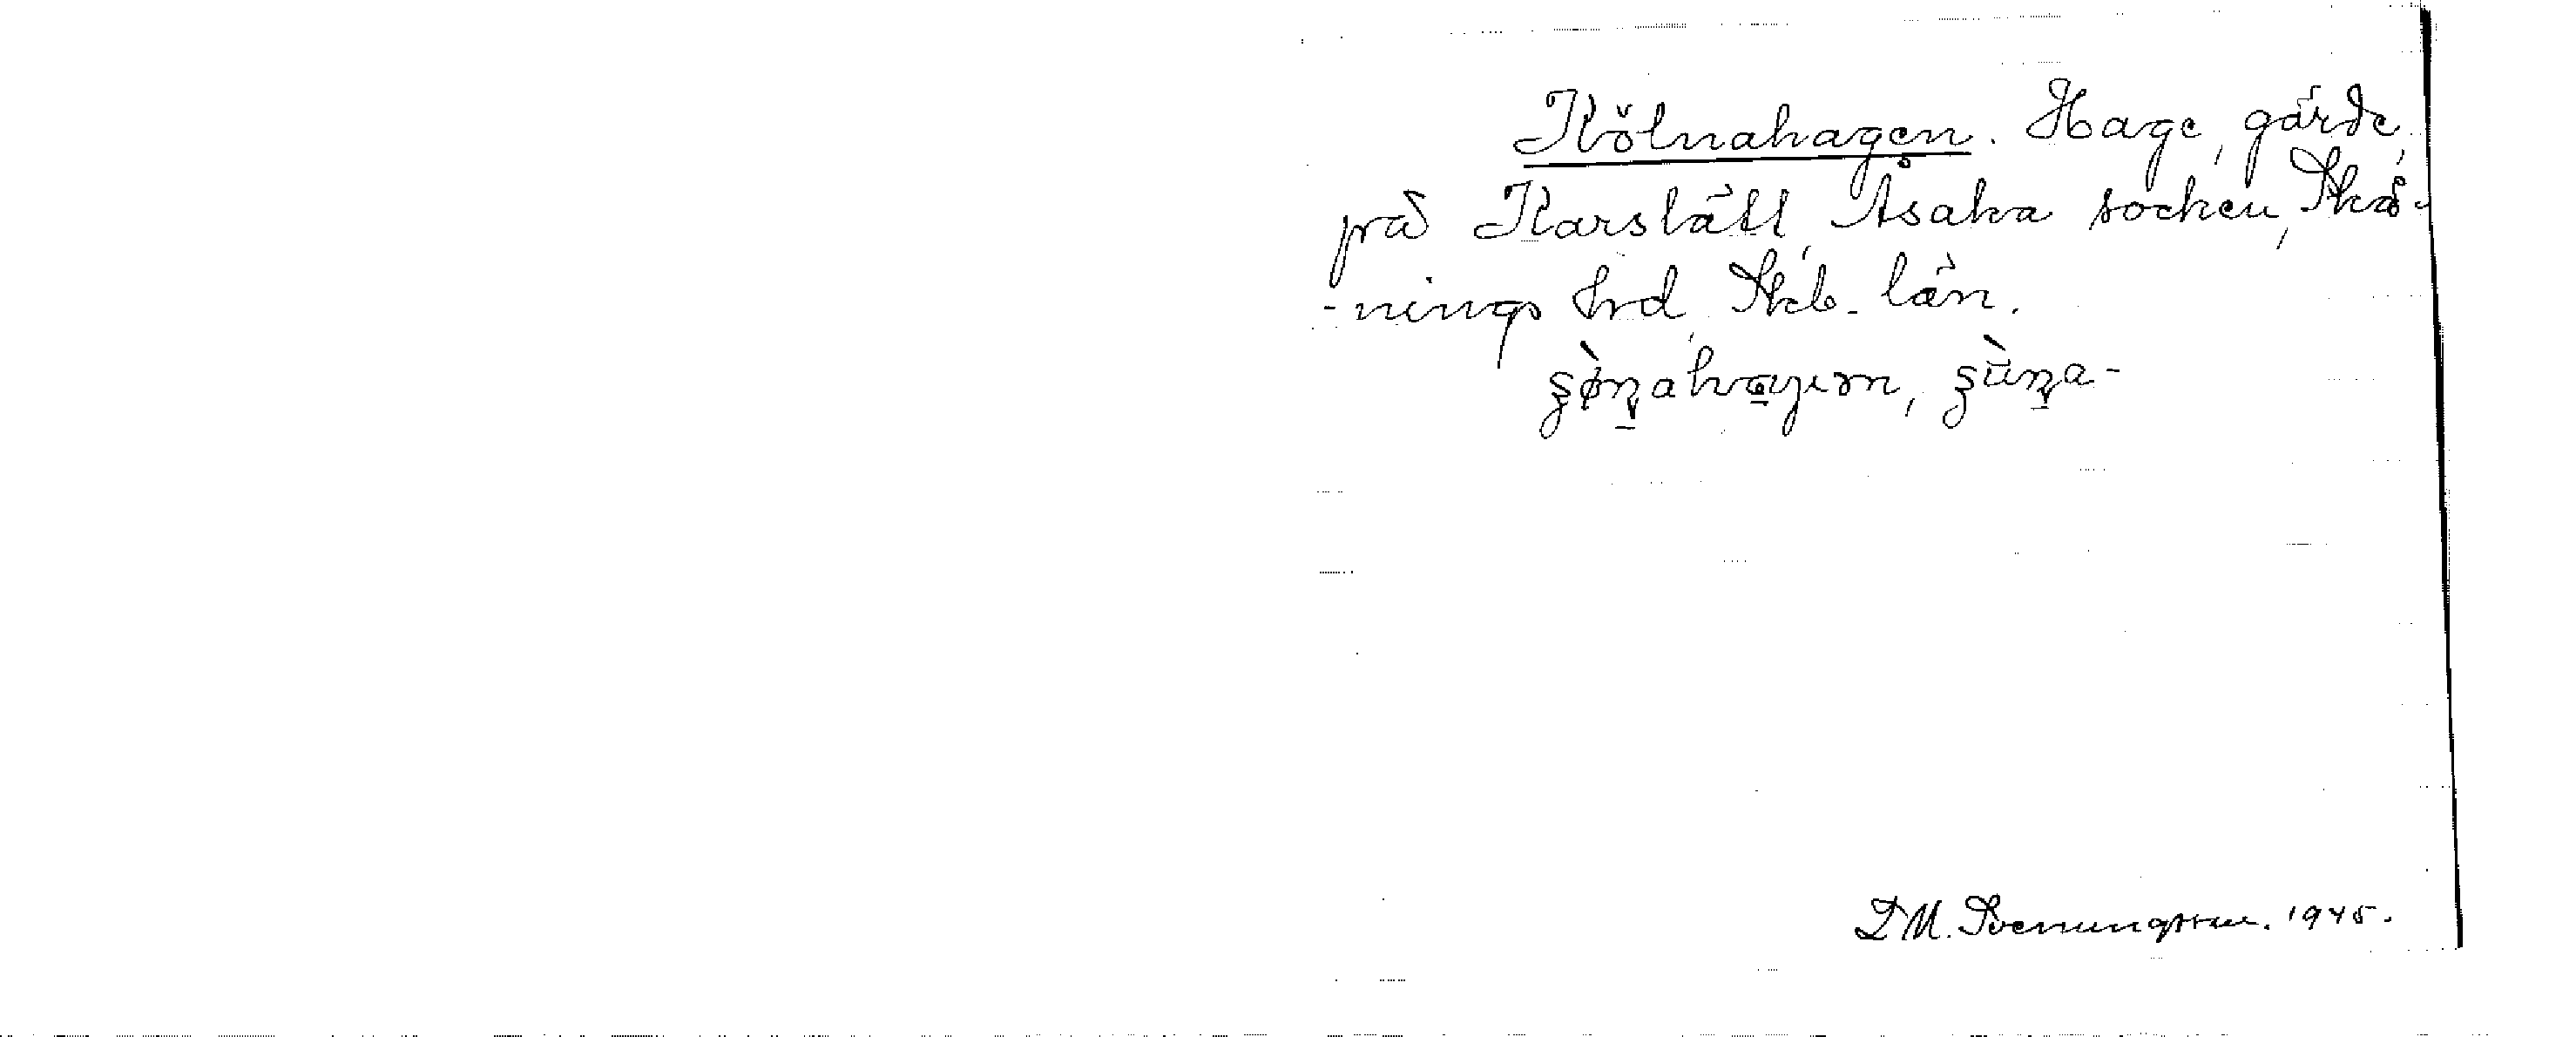 Kölnahagen. Hage, gärde,
på Karslätt, Åsaka socken, Skå-
-nings hrd, Skb. län.
D M. Svenungsson. 1945.